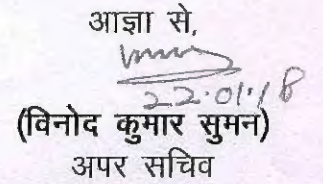 आज्ञा से,
22.01.18
(विनोद कुमार सुमन)
अपर सचिव